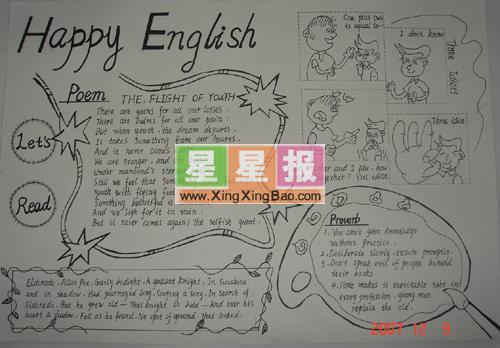 Happy English
Let's
Read
Poem
THE FLIGHT OF YOUTH
There are gains for all our losses.
There are balms for all our pain:
But when youth, the dream departs
It takes something from our hearts
And it never comes
We are stronger, and
Under manhood's stern
Still we feel that Som
Youth with flying feet
Something beautiful
And we sigh for it in vain:
But it never comes again! The selfish giant.
One plus two
is equal to
I don't know
Three Idiots
Three idiot
Proverb
1. You can't gain knowledge
without practice.
2. Deliberate slowly, execute promptly.
3. Don't speak evil of people behind
their backs.
4. Time makes it inevitable that in
every profession, young men
replace the old.
Eldorado. Allan Poe. Gaily bedight. A gallant knight. In Sunshine
and in shadow. Had journeyed long. Singing a song. In search of
Eldorado. But he grew old — This knight so bold — And over his
heart a shadow. Fell as he found. No spot of ground. That looked.
星星报
www.XingXingBao.com
2007 12 9